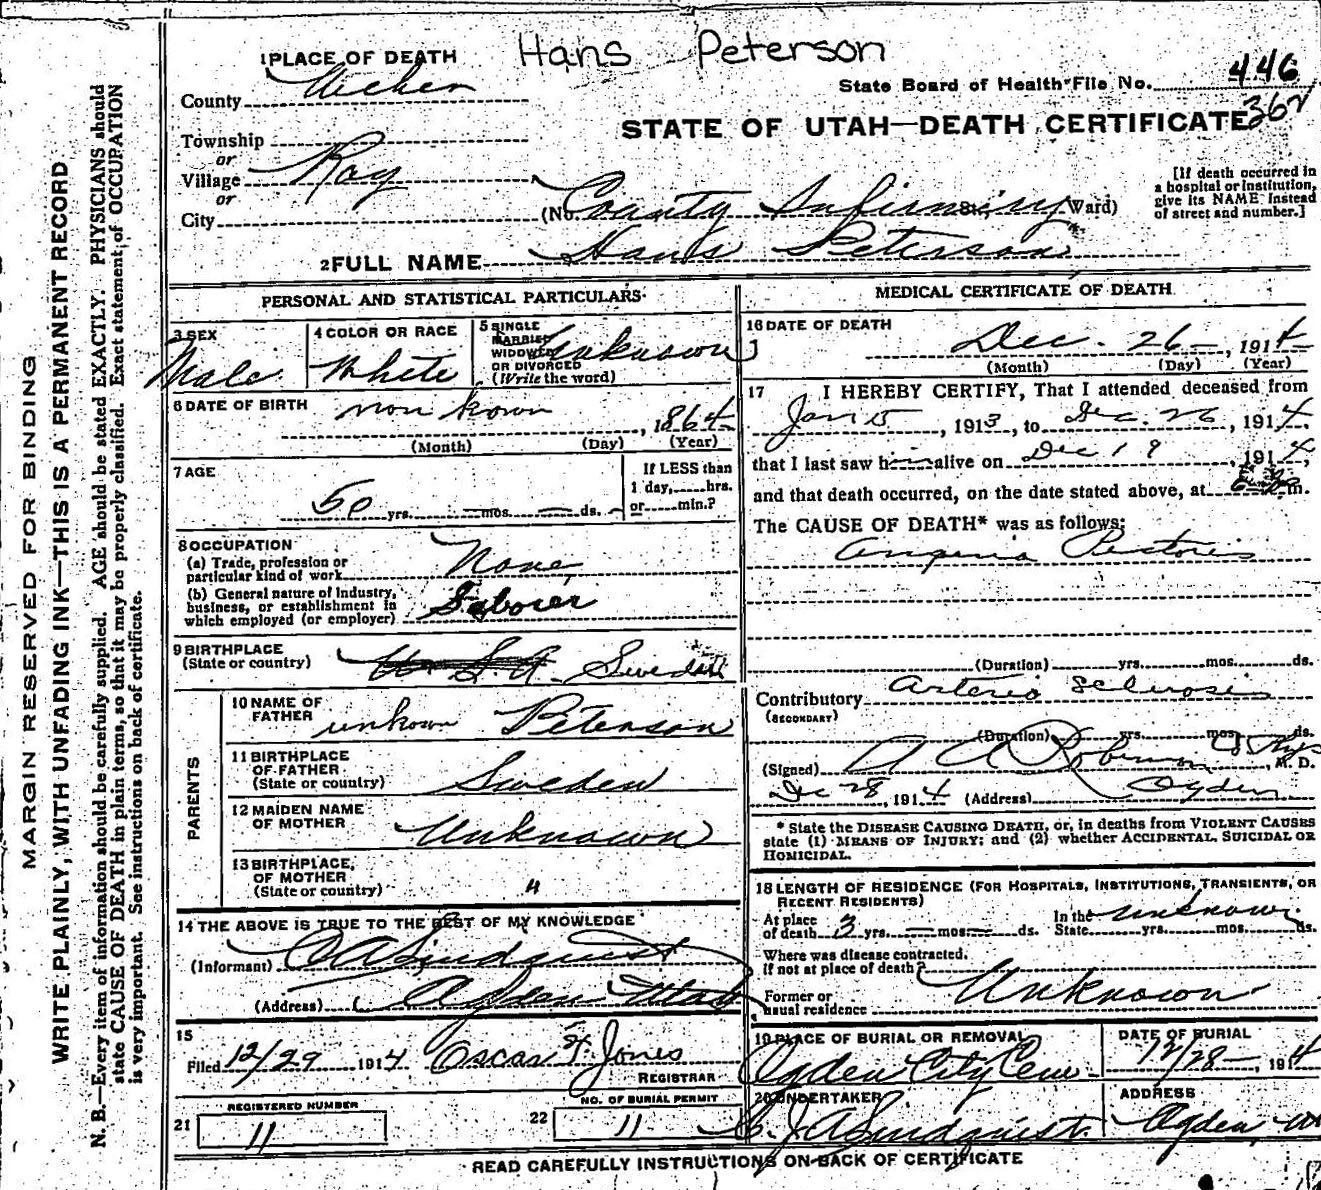 Hans Peterson
1 PLACE OF DEATH
State Board of Health File No. 446
362
County Weber
STATE OF UTAH—DEATH CERTIFICATE
Township
or
Village Roy
or
City
(No. County Infirmary St.; Ward)
[If death occurred in
a hospital or institution,
give its NAME instead
of street and number.]
2 FULL NAME Hans Peterson
PERSONAL AND STATISTICAL PARTICULARS
3 SEX
Male
4 COLOR OR RACE
White
5 SINGLE
MARRIED
WIDOWED
OR DIVORCED
(Write the word)
Unknown
6 DATE OF BIRTH non kown, 1864
(Month) (Day) (Year)
7 AGE
50 yrs. — mos. — ds.
If LESS than
1 day, hrs.
or min.?
8 OCCUPATION
(a) Trade, profession or
particular kind of work None
(b) General nature of Industry,
business, or establishment in
which employed (or employer) Laborer
9 BIRTHPLACE
(State or country) U. S. A. Sweden
PARENTS
10 NAME OF
FATHER unkown Peterson
11 BIRTHPLACE
OF FATHER
(State or country) Sweden
12 MAIDEN NAME
OF MOTHER Unknown
13 BIRTHPLACE
OF MOTHER
(State or country) "
14 THE ABOVE IS TRUE TO THE BEST OF MY KNOWLEDGE
(Informant) C A Lindquist
(Address) Ogden Utah
15
Filed 12/29 1914 Oscar F. Jones
REGISTRAR
21 REGISTERED NUMBER
11
22 NO. OF BURIAL PERMIT
11
MEDICAL CERTIFICATE OF DEATH
16 DATE OF DEATH
Dec. 26—, 1914
(Month) (Day) (Year)
17 I HEREBY CERTIFY, That I attended deceased from
Jan 15, 1913, to Dec. 26, 1914,
that I last saw him alive on Dec 19, 1914,
and that death occurred, on the date stated above, at m.
The CAUSE OF DEATH* was as follows:
Angina Pectoris
(Duration) yrs. mos. ds.
Contributory Arterio Sclerosis
(SECONDARY)
(Duration) yrs. mos. ds.
(Signed) A A Robinson Co Phys, M. D.
Dec 28, 1914 (Address) Ogden
* State the DISEASE CAUSING DEATH, or, in deaths from VIOLENT CAUSES
state (1) MEANS OF INJURY; and (2) whether ACCIDENTAL, SUICIDAL OR
HOMICIDAL.
18 LENGTH OF RESIDENCE (FOR HOSPITALS, INSTITUTIONS, TRANSIENTS, OR
RECENT RESIDENTS)
At place
of death 3 yrs. — mos. — ds.
In the
State unknown yrs. mos. ds.
Where was disease contracted,
if not at place of death?
Former or
usual residence Unknown
19 PLACE OF BURIAL OR REMOVAL
Ogden City Cem
DATE OF BURIAL
12/28—, 1914
20 UNDERTAKER
C. J. A Lindquist.
ADDRESS
Ogden
READ CAREFULLY INSTRUCTIONS ON BACK OF CERTIFICATE
MARGIN RESERVED FOR BINDING
WRITE PLAINLY, WITH UNFADING INK—THIS IS A PERMANENT RECORD
N. B.—Every item of information should be carefully supplied. AGE should be stated EXACTLY. PHYSICIANS should
state CAUSE OF DEATH in plain terms, so that it may be properly classified. Exact statement of OCCUPATION
is very important. See instructions on back of certificate.